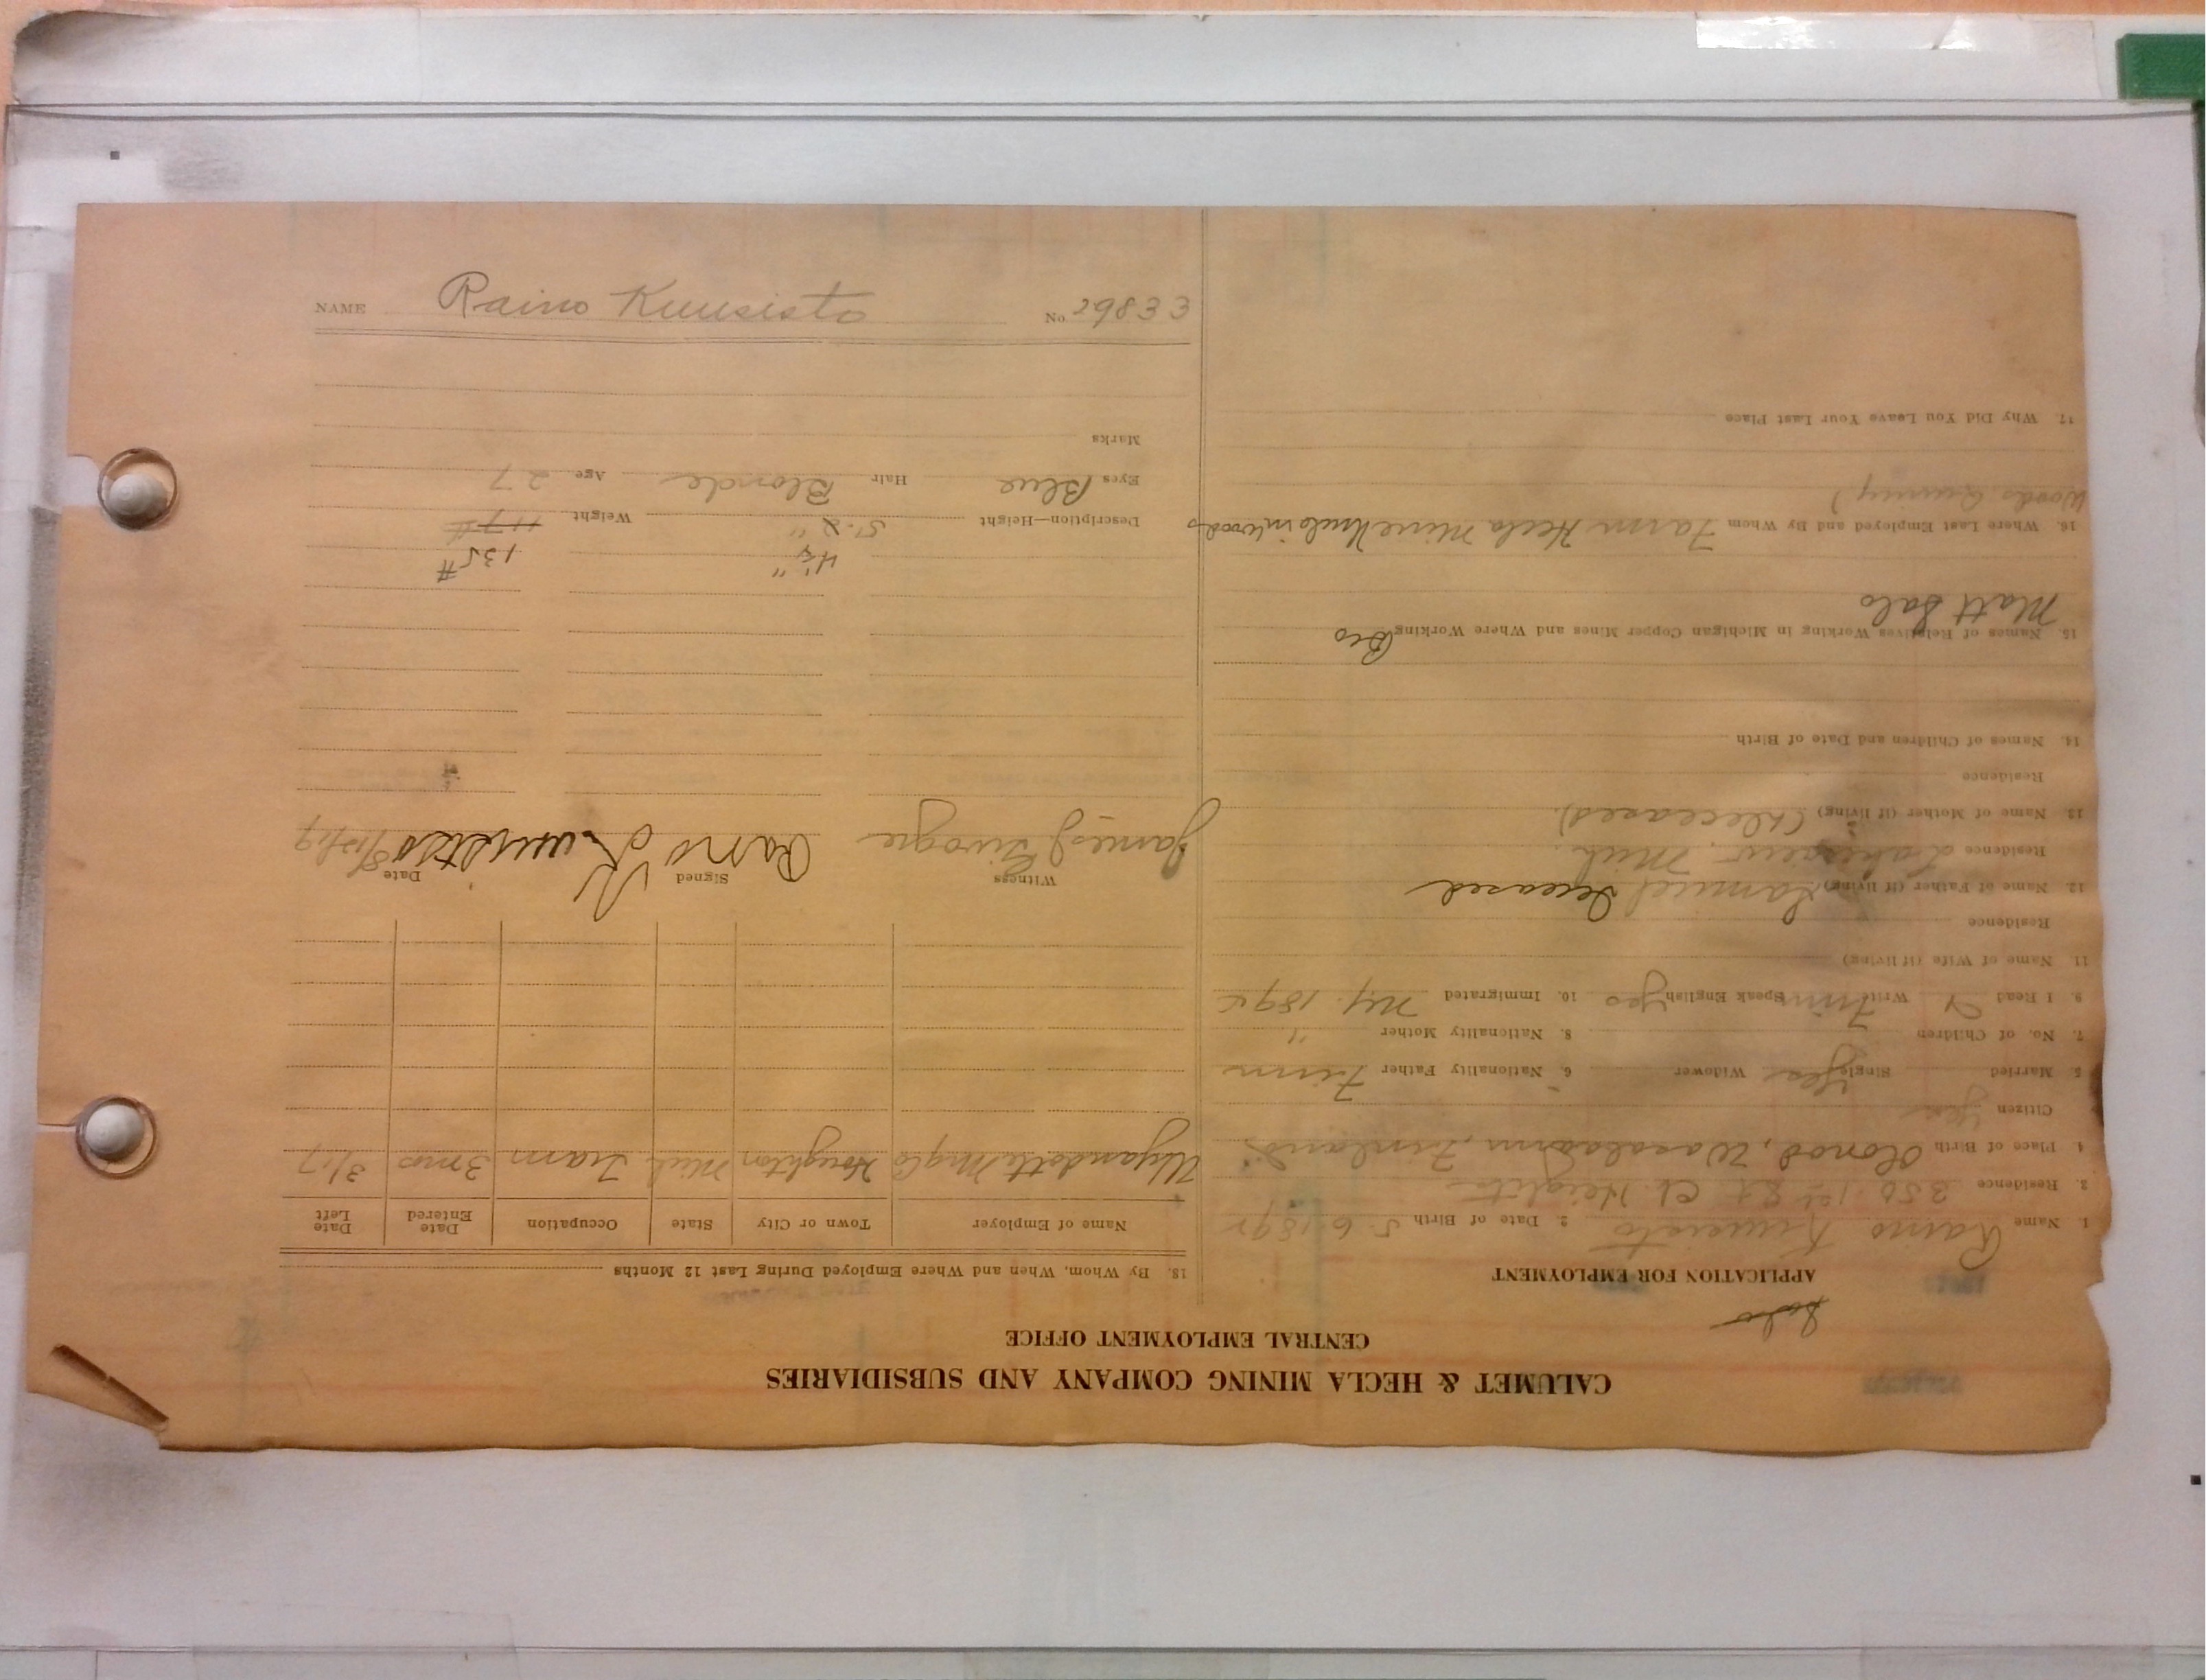 CALUMET & HECLA MINING COMPANY AND SUBSIDIARIES
CENTRAL EMPLOYMENT OFFICE
Salo
APPLICATION FOR EMPLOYMENT
1. Name Raino Kuusisto 2. Date of Birth 5-6-1892
3. Residence 350. 1st St. Cl. Heights
4. Place of Birth Wasalaani, Finland
Citizen Yes
5. Married Single Yes Widower 6. Nationality Father Finn
7. No. of Children 8. Nationality Mother "
9. I Read Y Write Finn Speak English yes 10. Immigrated Ny. 189
11. Name of Wife (if living)
Residence
12. Name of Father (if living) Samuel Deceased
Residence Mich.
13. Name of Mother (if living) (Deceased).
Residence
14. Names of Children and Date of Birth
15. Names of Relatives Working in Michigan Copper Mines and Where Working Bro
Matt Salo
16. Where Last Employed and By Whom Farm Hecla Mine in Woods
Woods Quincy)
17. Why Did You Leave Your Last Place
18. By Whom, When and Where Employed During Last 12 Months
Name of Employer Town or City State Occupation Date Entered Date Left
Wyandott Mg Co Houghton Mich Tram 3 mos 3/17
Witness Signed Date
James J Raino Kuusisto
4½" 135#
Description—Height 5'-2" Weight 117#
Eyes Blue Hair Blonde Age 27
Marks
NAME Raino Kuusisto No. 29833